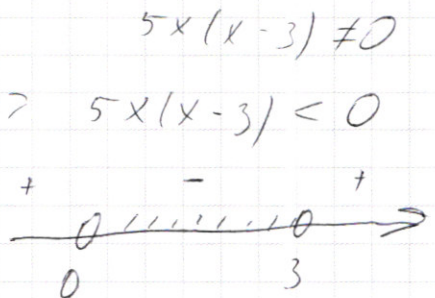 5x(x-3) ≠ 0
> 5x(x-3) < 0
+ - +
0 3